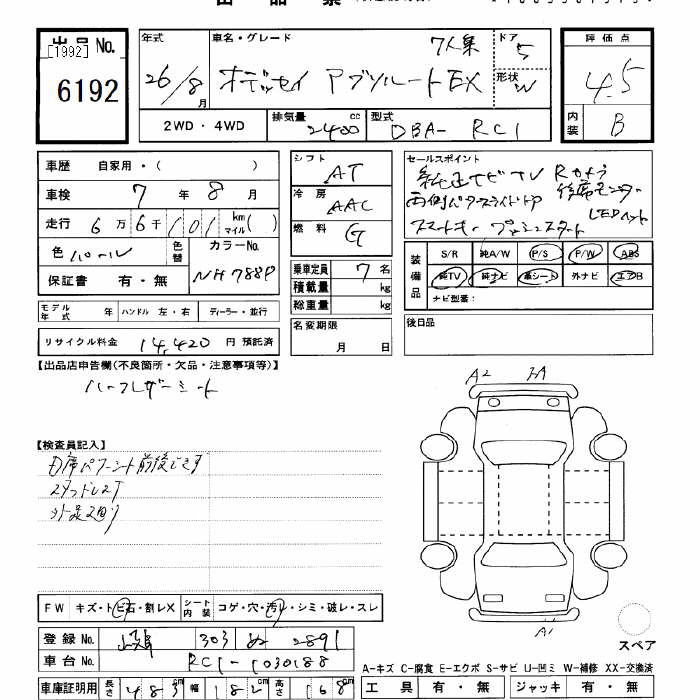 出品No.
[1992]
6192
年式
26/8月
車名・グレード
7人乗
オデッセイ アブソルートEX
ドア
5
形状
W
評価点
4.5
内装
B
2WD・4WD
排気量
2400cc
型式
DBA- RC1
車歴 自家用・( )
車検 7年 8月
走行 6万6千101 km マイル( )
色 パール
色替
カラーNo.
NH788P
保証書 有・無
モデル年式 年 ハンドル 左・右 ディーラー・並行
リサイクル料金 14,420 円 預託済
シフト AT
冷房 AAC
燃料 G
乗車定員 7名
積載量 kg
総重量 kg
名変期限
月 日
セールスポイント
純正ナビTV Rカメラ
両側パワースライドドア 後席モニター
スマートキー プッシュスタート LEDヘッド
装備品
S/R 純A/W P/S P/W ABS
純TV 純ナビ 革シート 外ナビ エアB
ナビ型番:
後日品
【出品店申告欄(不良箇所・欠品・注意事項等)】
ハーフレザーシート
【検査員記入】
D席パワーシート前後できず
スタッドレスT
A2
A1
FW キズ・トビ石・割レX シート内装 コゲ・穴・汚レ・シミ・破レ・スレ
登録No. 303 ぬ 2891
車台No. RC1-1030188
車庫証明用 長さ 483cm 幅 182cm 高さ 168cm
スペア
A-キズ C-腐食 E-エクボ S-サビ U-凹ミ W-補修 XX-交換済
工具 有・無 ジャッキ 有・無